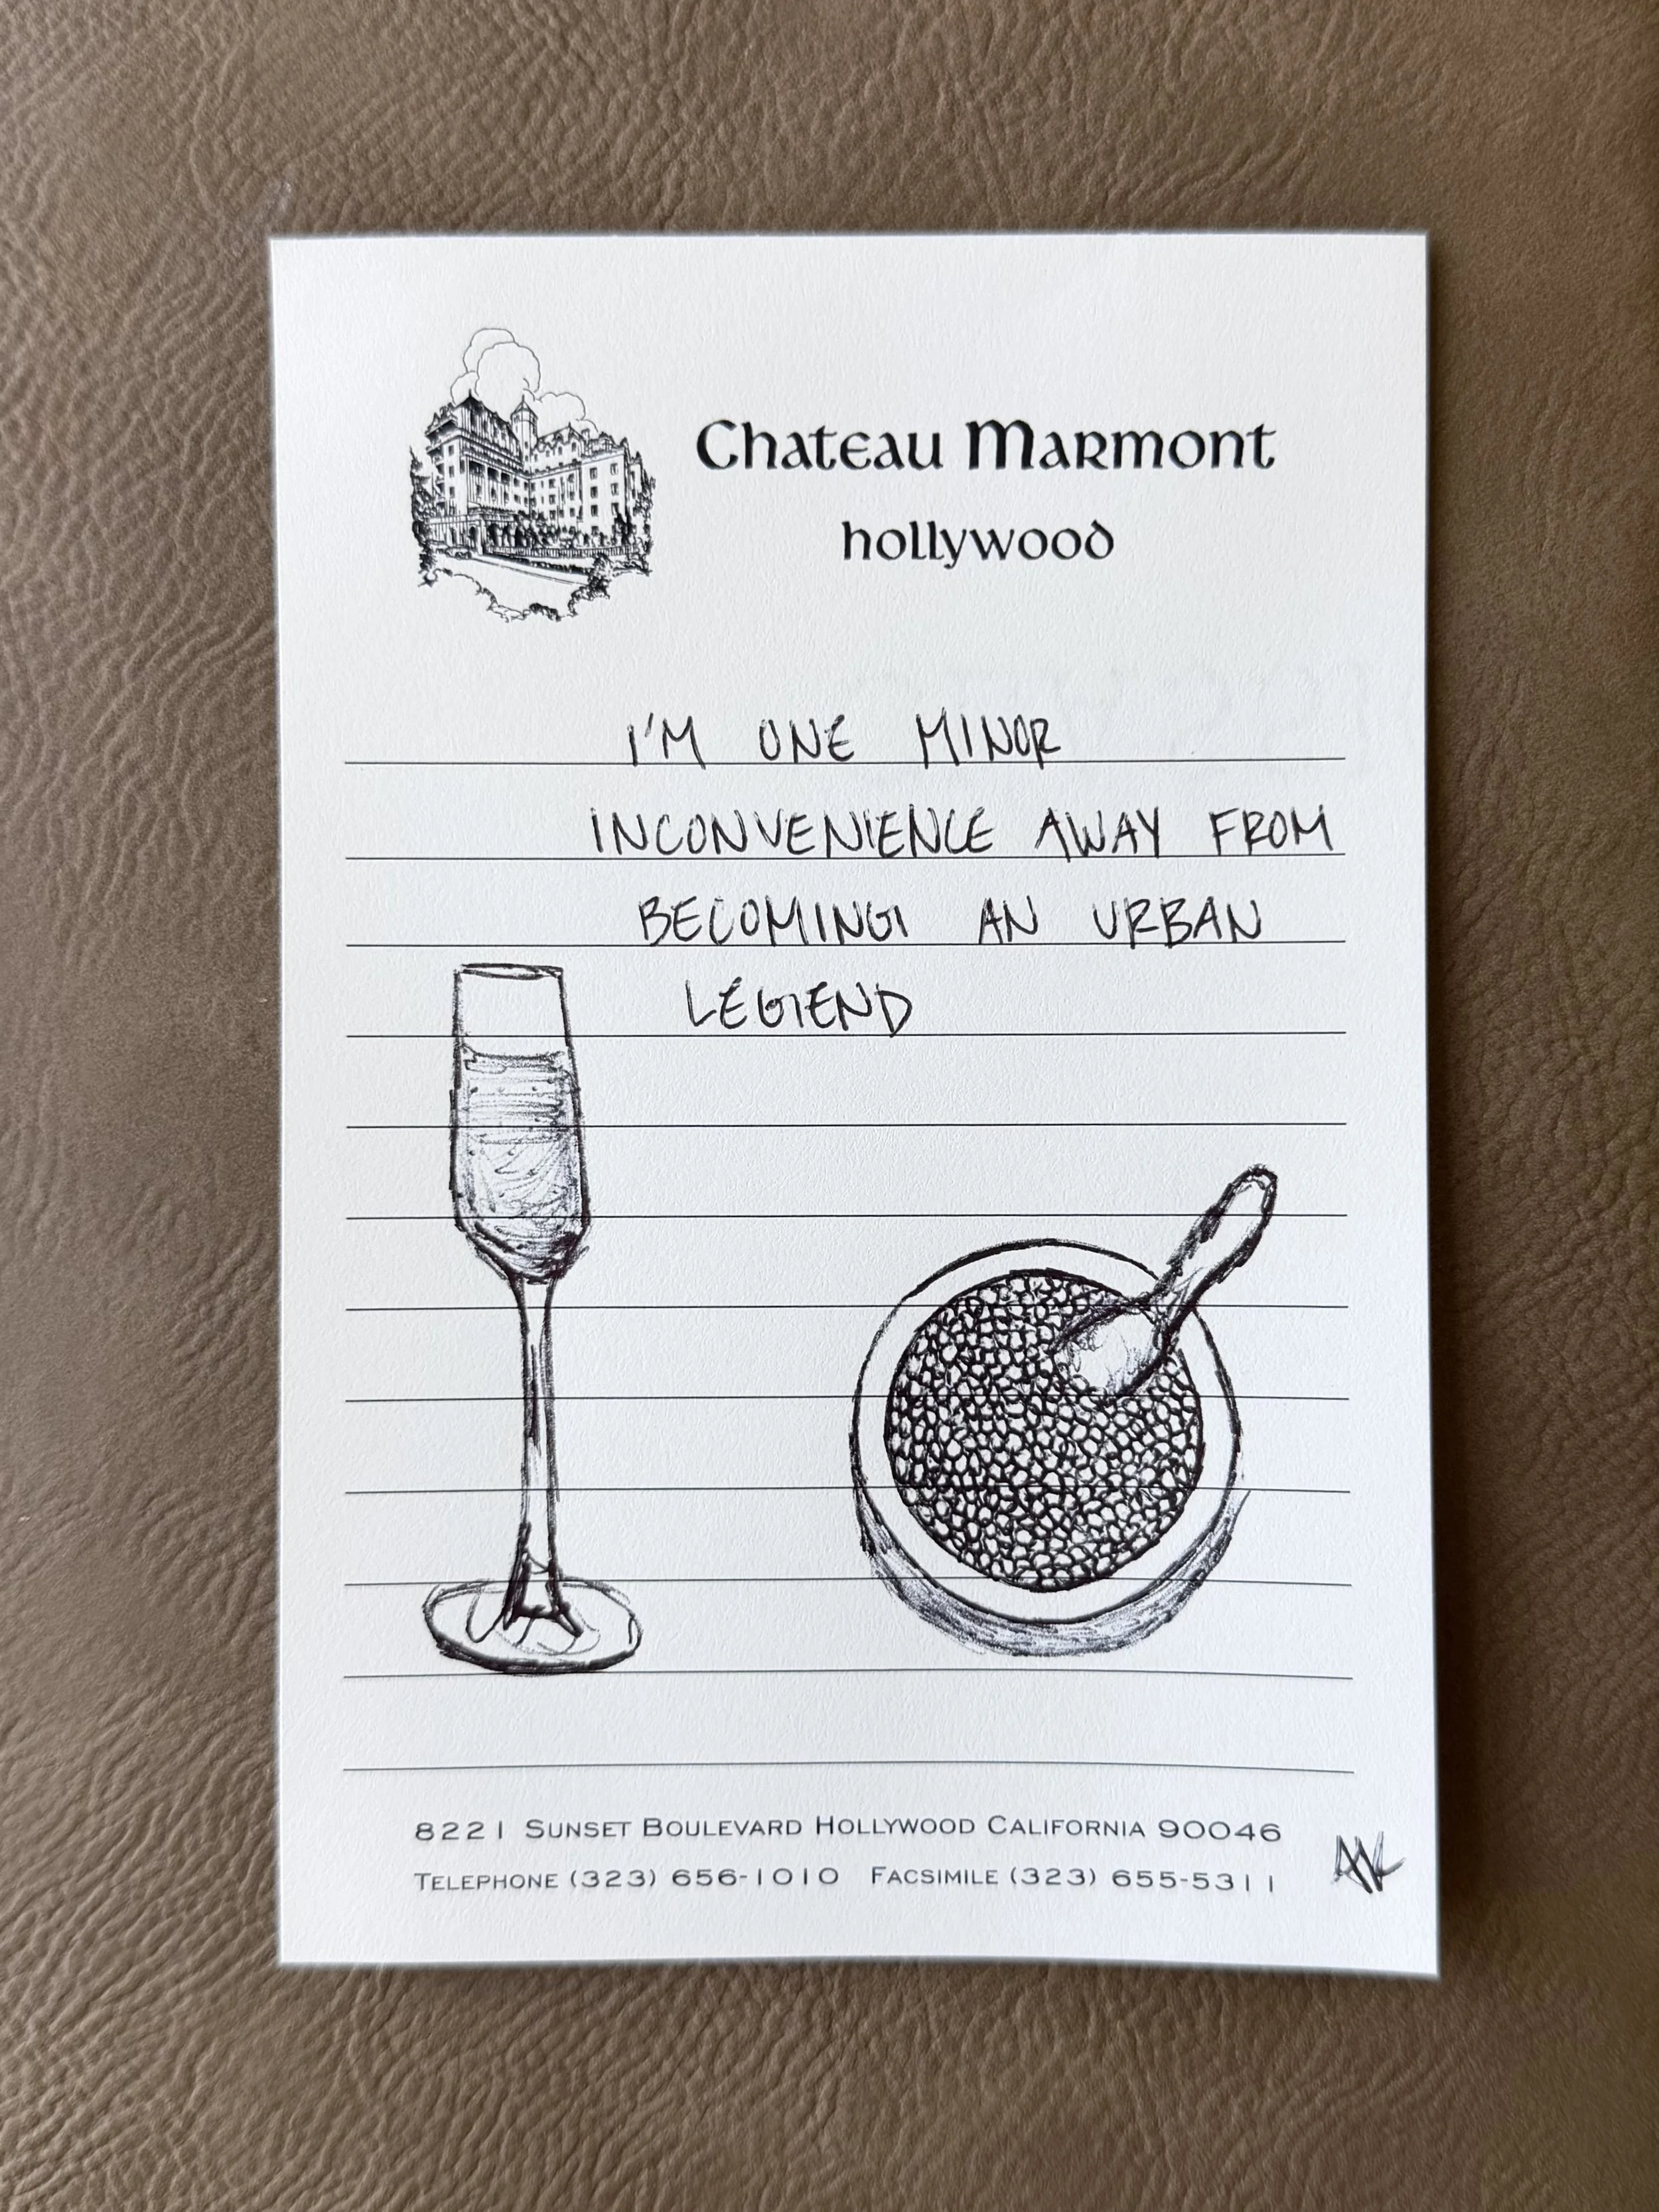 Chateau Marmont
hollywood
I'M ONE MINOR
INCONVENIENCE AWAY FROM
BECOMING AN URBAN
LEGEND
8221 SUNSET BOULEVARD HOLLYWOOD CALIFORNIA 90046
TELEPHONE (323) 656-1010 FACSIMILE (323) 655-5311